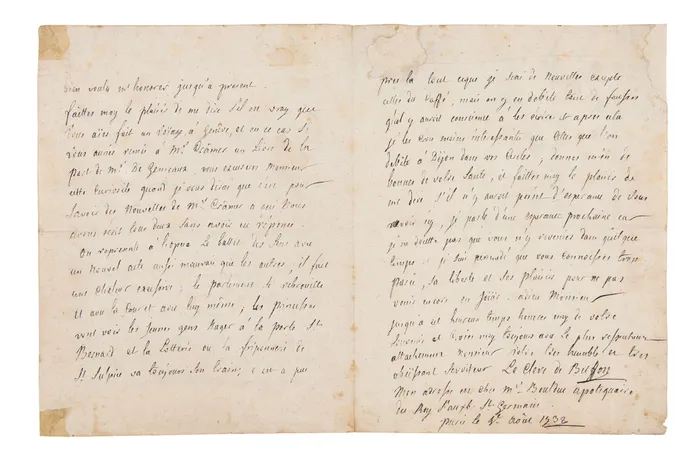 bien voulu m'honorer jusqu'a present.
faittes moy le plaisir de me dire s'il est vray que
vous aves fait un voyage à Genêve, et en ce cas si
vous aures remis à Mr. Crâmer un Livre de la
part de Mr. De , vous excuserez Monsieur
cette curiosité quand je vous dirai que c'est pour
savoir des Nouvelles de Mr. Crâmer a qui Nous
avons ecrit tous deux sans avoir eu réponce.
On represente à l'opera Le ballet des Sens avec
un Nouvel acte aussi mauvais que les autres, il fait
une chaleur excessive; le parlement se rebrouille
et avec la Cour et avec luy même; les princesses
vont voir les jeunes gens Nager à la porte St.
Bernard et la Lotterie ou la friponnerie de
St. Sulpice va toujours son train; c'en a peu
pres la tout ceque je scai de Nouvelles excepté
celles du Caffé, mais on y en debite tant de fausses
qu'il y auroit conscience à les ecrire et apres cela
je les crois moins interessantes que celles que l'on
debite à Dijon dans vos Cercles, donnes m'en de
bonnes de votre Santé, et faittes moy le plaisir de
me dire s'il n'y auroit point d'esperance de vous
revoir icy, je parle d'une esperance prochaine car
je ne doutte pas que vous n'y reveniez dans quelque
temps et je suis persuadé que vous connoissez trop
paris, sa liberté et ses plaisirs pour ne pas
venir encor en jöuir. adieu Monsieur
jusqu'à cet heureux temps honores moy de votre
Souvenir et croies moy toujours avec le plus respectueux
attachement Monsieur votre tres humble et tres
obeissant serviteur Le Clerc de Buffon
Mon adresse est chez Mr. Boulduc apotiquaire
du Roy fauxb. St. Germain
paris le Août 1732